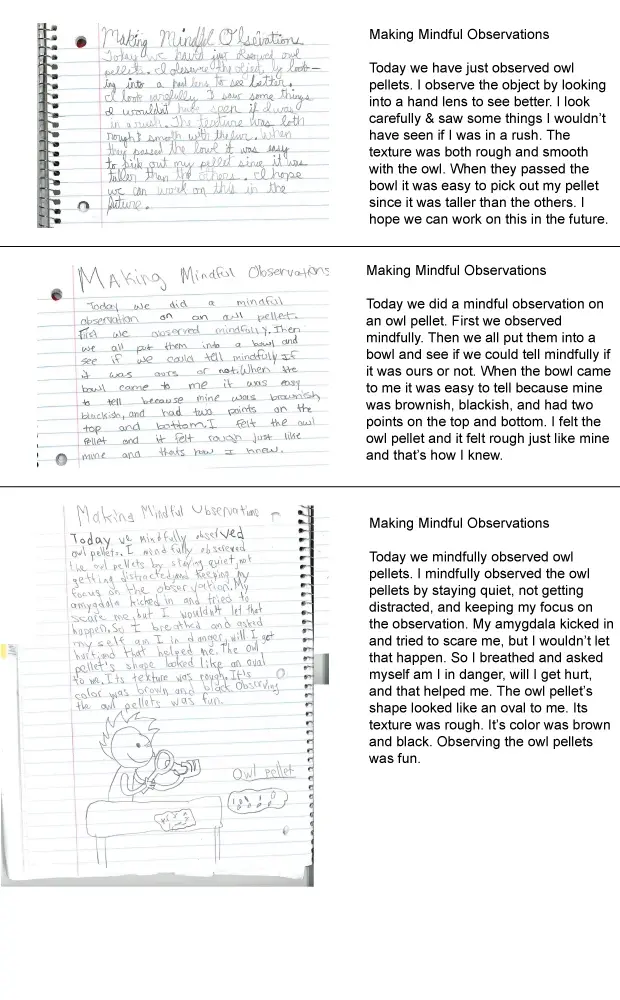 Making Mindful Obsevations
Today we have just obsowed owl
pellets. I observe the object by look-
ing into a hand lens to see better.
I look carefully & saw some things
I wouldn't have seen if I was
in a rush. The texture was both
rought smooth with the owl. When
they passed the bowl it was easy
to pick out my pellet since it was
taller than the others. I hope
we can work on this in the
future.
Making Mindful Observations
Today we have just observed owl
pellets. I observe the object by looking
into a hand lens to see better. I look
carefully & saw some things I wouldn't
have seen if I was in a rush. The
texture was both rough and smooth
with the owl. When they passed the
bowl it was easy to pick out my pellet
since it was taller than the others. I
hope we can work on this in the future.
Making Mindful Observations
Today we did a mindful
observation on an owl pellet.
First we observed mindfully. Then
we all put them into a bowl and
see if we could tell mindfully if
it was ours or not. When the
bowl came to me it was easy
to tell because mine was brownish,
blackish, and had two points on the
top and bottom. I felt the owl
pellet and it felt rough just like
mine and thats how I knew.
Making Mindful Observations
Today we did a mindful observation on
an owl pellet. First we observed
mindfully. Then we all put them into a
bowl and see if we could tell mindfully if
it was ours or not. When the bowl came
to me it was easy to tell because mine
was brownish, blackish, and had two
points on the top and bottom. I felt the
owl pellet and it felt rough just like mine
and that's how I knew.
Making Mindful Observations
Today we mindfully observed
owl pellets. I mindfully observed
the owl pellets by staying quiet, not
getting distracted, and keeping my
focus on the observation. My
amygdala kicked in and tried to
scare me, but I wouldn't let that
happen. So I breathed and asked
my self am I in danger, will I get
hurt, and that helped me. The owl
pellet's shape looked like an oval
to me. Its texture was rough. It's
color was brown and black. Observing
the owl pellets was fun.
Owl pellet
Making Mindful Observations
Today we mindfully observed owl
pellets. I mindfully observed the owl
pellets by staying quiet, not getting
distracted, and keeping my focus on
the observation. My amygdala kicked in
and tried to scare me, but I wouldn't let
that happen. So I breathed and asked
myself am I in danger, will I get hurt,
and that helped me. The owl pellet's
shape looked like an oval to me. Its
texture was rough. It's color was brown
and black. Observing the owl pellets
was fun.